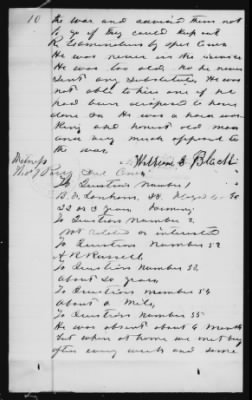 10
the war and advised them not
to go if they could keep out
He was never in the service
He was too old, no he never
sent any substitute, He was
not able to hire one if he
had been disposed to have
done so. He was a hard wor
king and honest old man
and very much opposed to
the war.
William S. Black
Witness
To Question Number 1
22 or 3 years Farming
To Question Number 2,
not related or interested
To Question Number 52
A. R. Russell
To Question Number 53
about 20 years
To Question Number 54
About a Mile,
To Question Number 55
He was absent about 6 Month
but when at home we met very
often every week and some